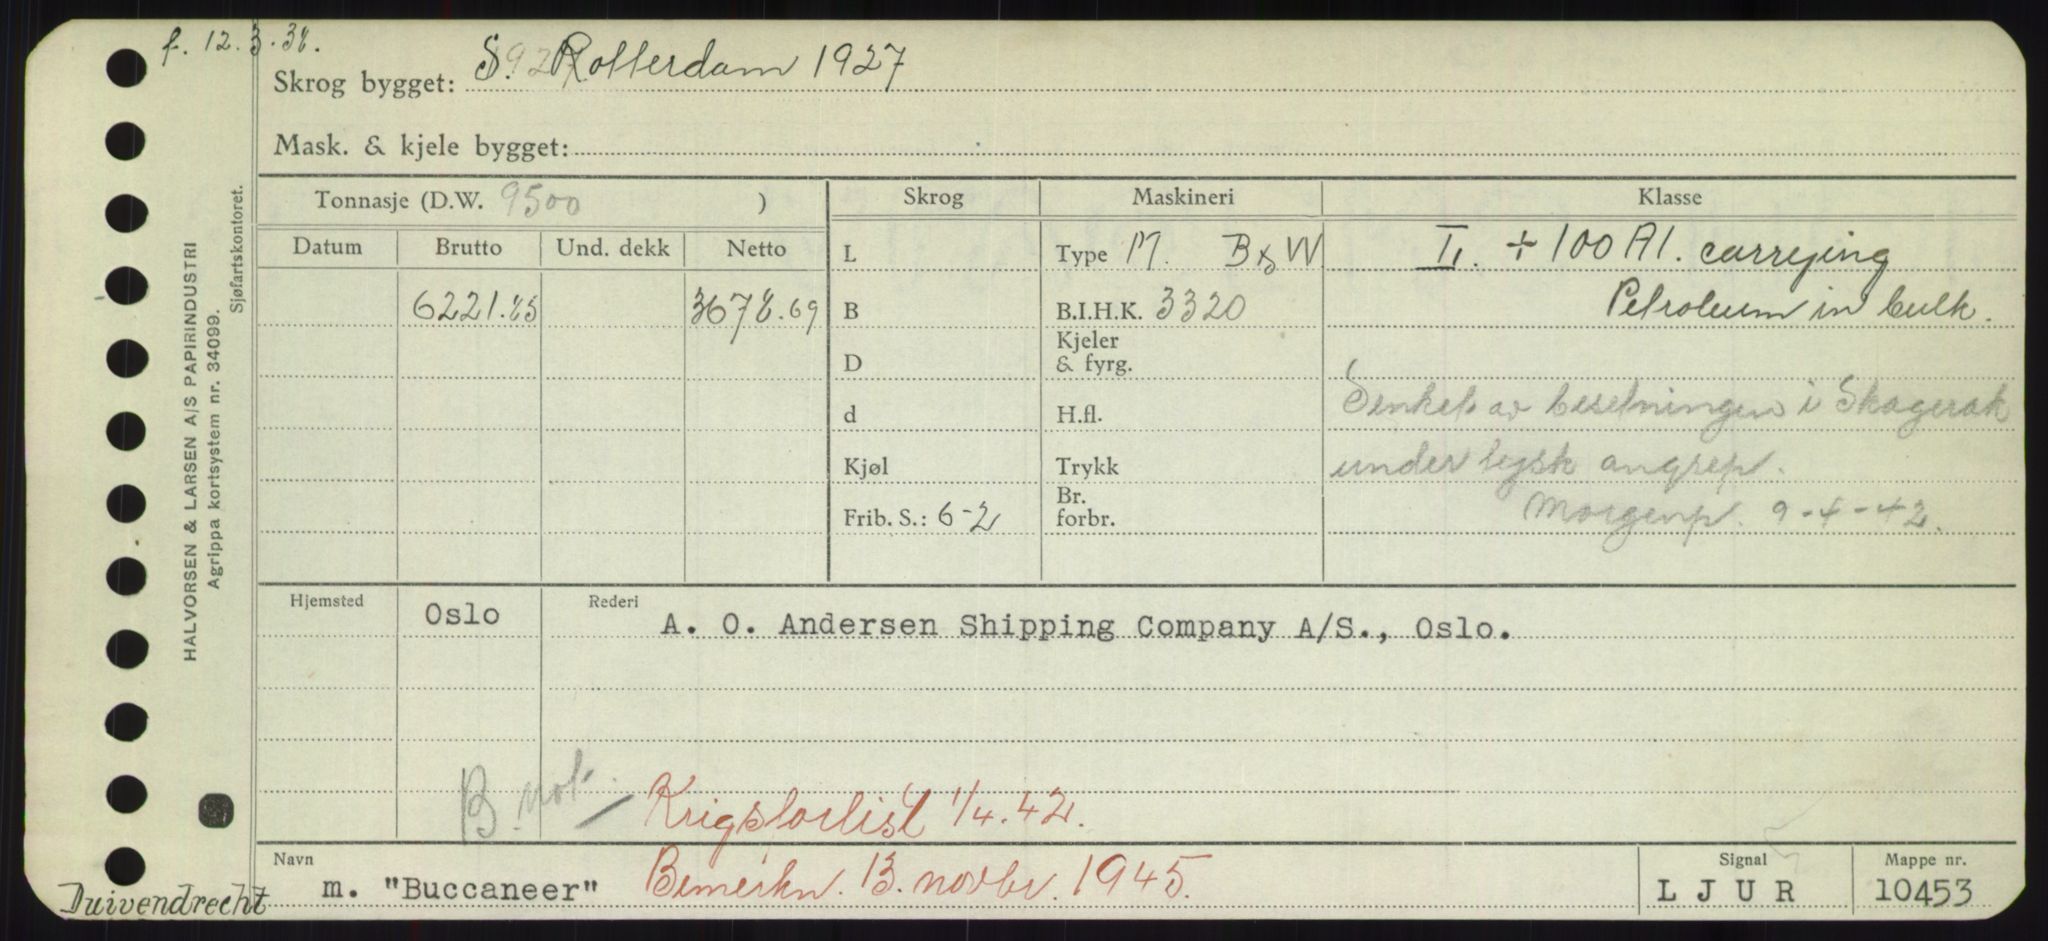 f. 12.3.38.
Skrog bygget: S. Rotterdam 1927
Mask. & kjele bygget:
Tonnasje (D.W. 9500 )
Skrog
Maskineri
Klasse
Datum
Brutto
Und. dekk
Netto
6221.85
3678.69
L
B
D
d
Kjøl
Frib. S.: 6-2
Type M. B & W
B.I.H.K. 3320
Kjeler
& fyrg.
H.fl.
Trykk
Br.
forbr.
I. ÷ 100 A1. carrying
Petroleum in bulk.
Senket av besetningen i Skagerak
under tysk angrep.
Morgenp. 9-4-42.
Hjemsted
Oslo
Rederi
A. O. Andersen Shipping Company A/S., Oslo.
B. not.
Krigsforlist 1/4.42.
Navn
m. "Buccaneer"
Bemerkn. 13. novbr. 1945.
Signal
L J U R
Mappe nr.
10453
Duivendrecht
HALVORSEN & LARSEN A/S PAPIRINDUSTRI
Agrippa kortsystem nr. 34099.
Sjøfartskontoret.